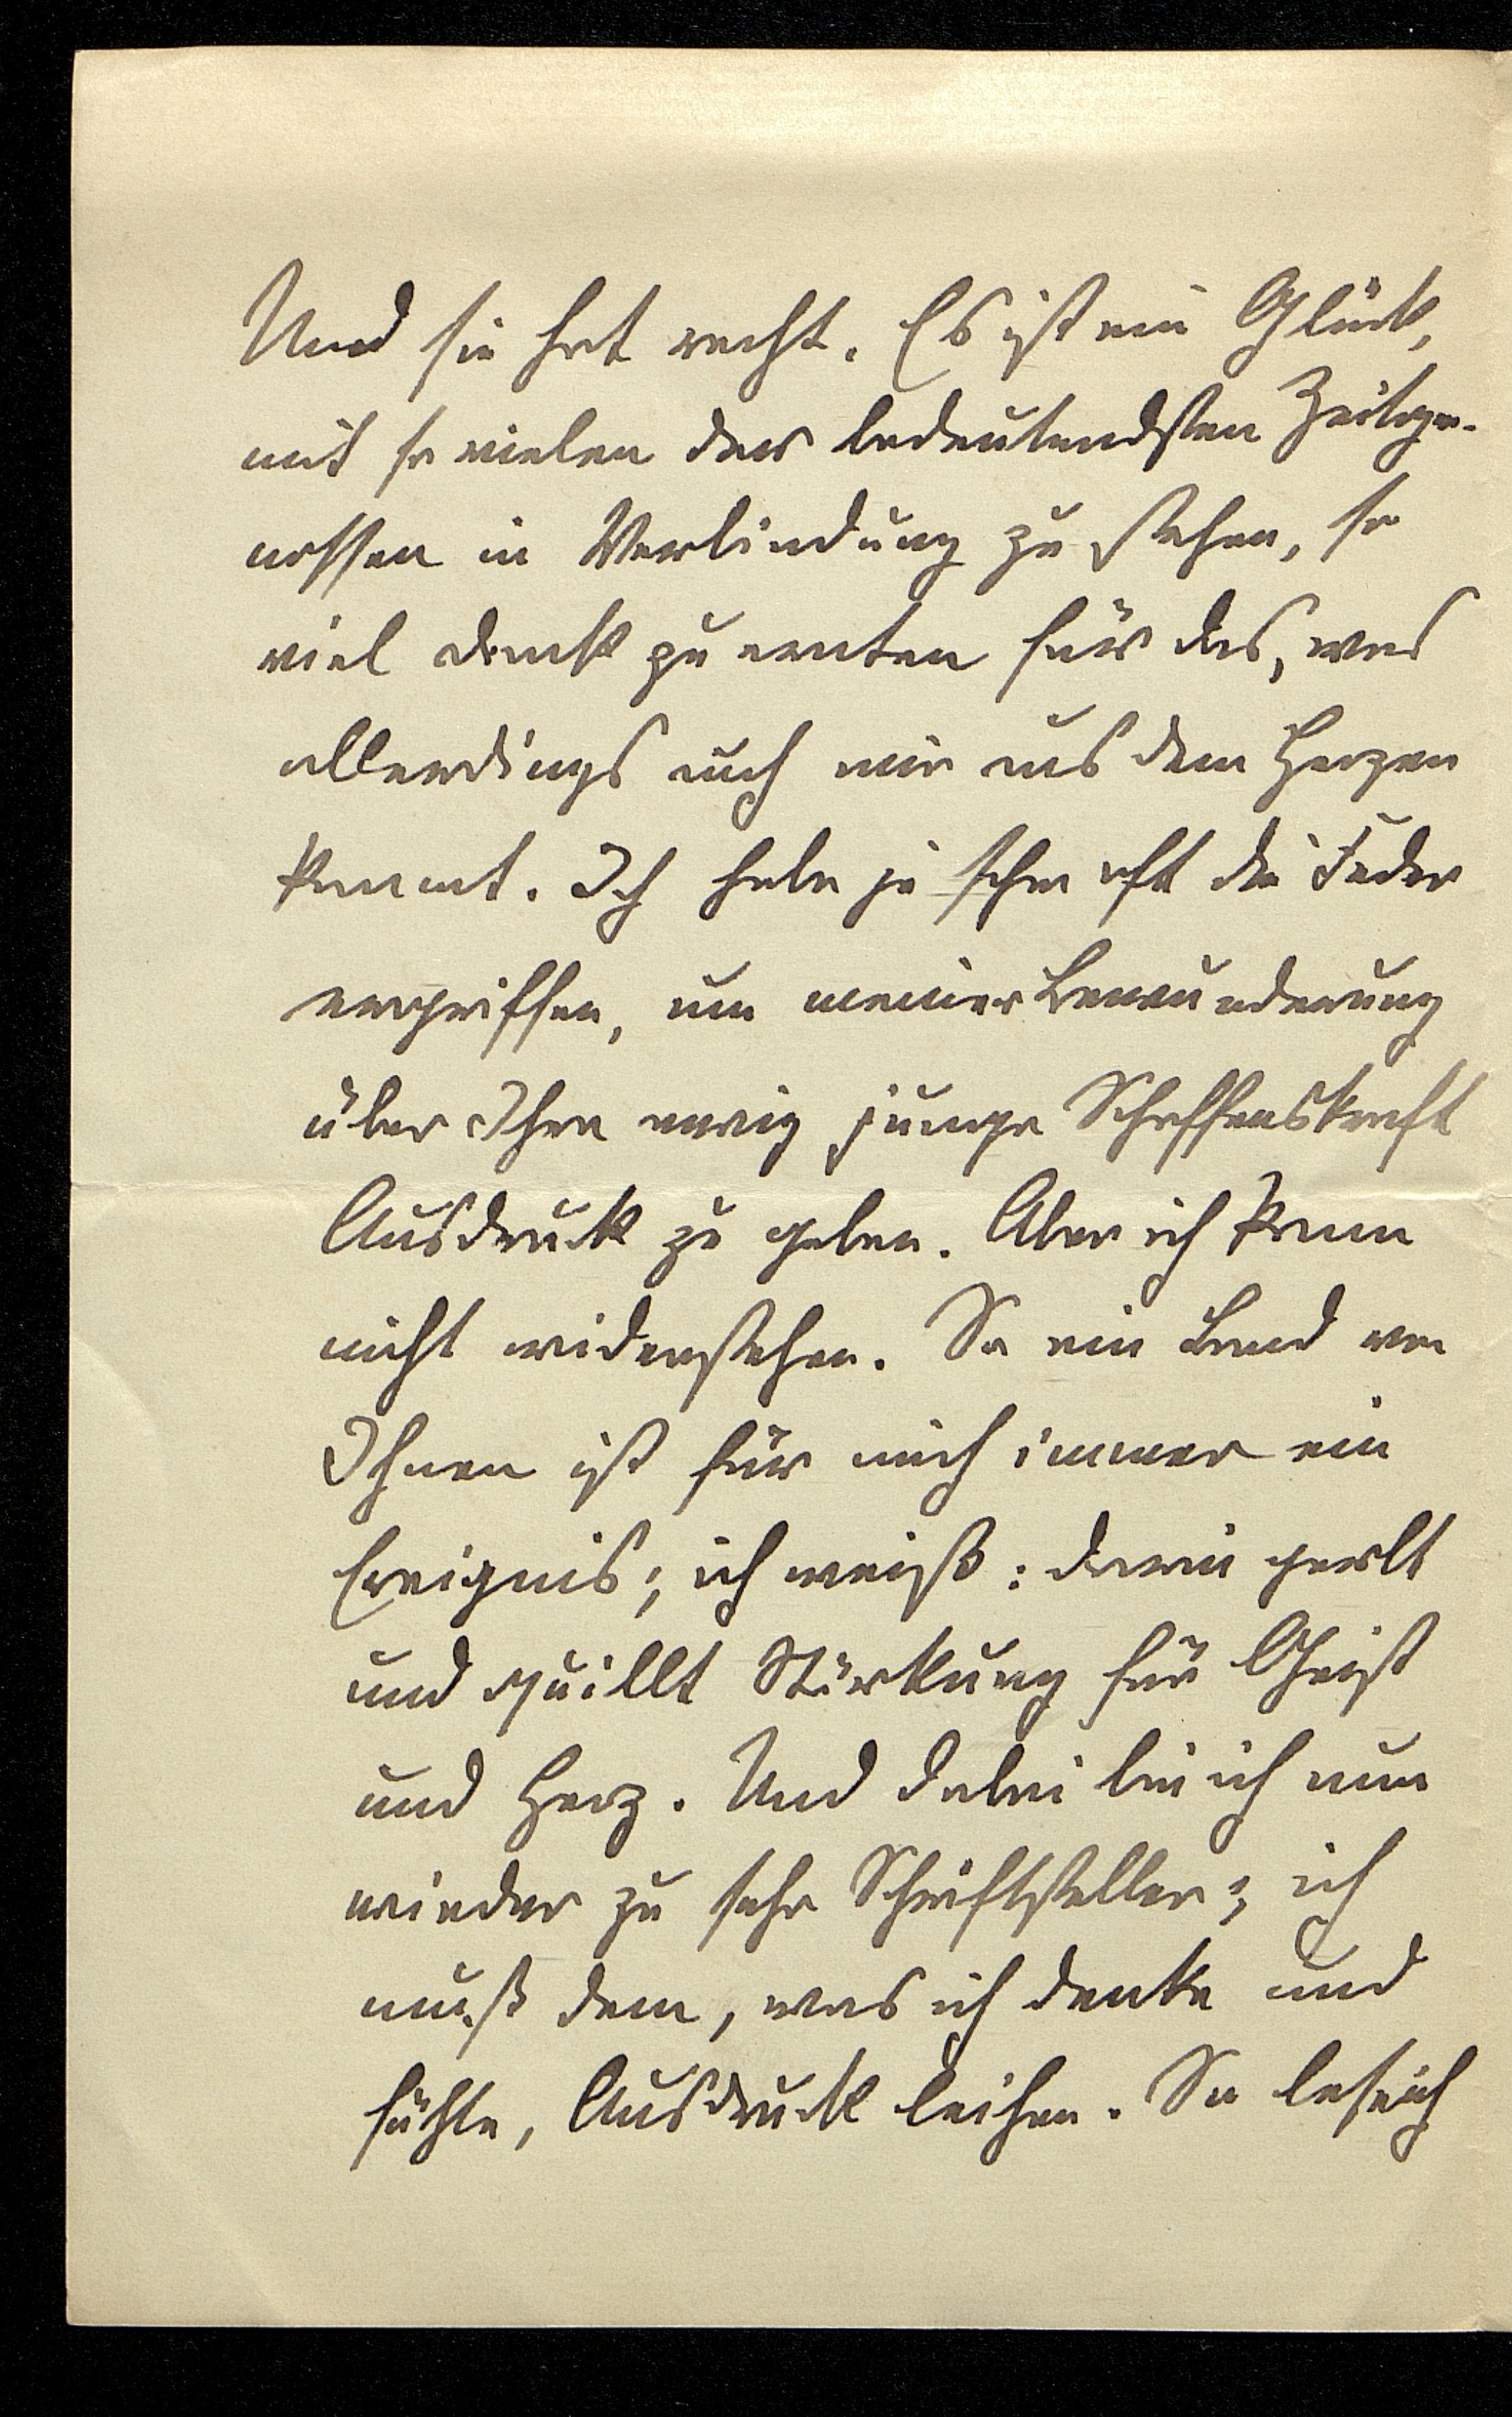 Und sie hat recht. Es ist ein Glück,
mit so vielen der bedeutendsten Zeitge-
nossen in Verbindung zu stehen, so
viel Dank zu ernten für das, was
allerdings auch mir aus dem Herzen
kommt. Ich habe ja schon oft die Feder
ergriffen, um meiner Bewunderung
über Ihre ewig junge Schaffenskraft
Ausdruck zu geben. Aber ich kann
nicht widerstehen. So ein Band von
Ihnen ist für mich immer ein
Ereignis; ich weiß: darin perlt
und quillt Stärkung für Geist
und Herz. Und dabei bin ich nun
wieder zu sehr Schriftsteller; ich
muß dem, was ich denke und
fühle, Ausdruck leihen. So laß ich